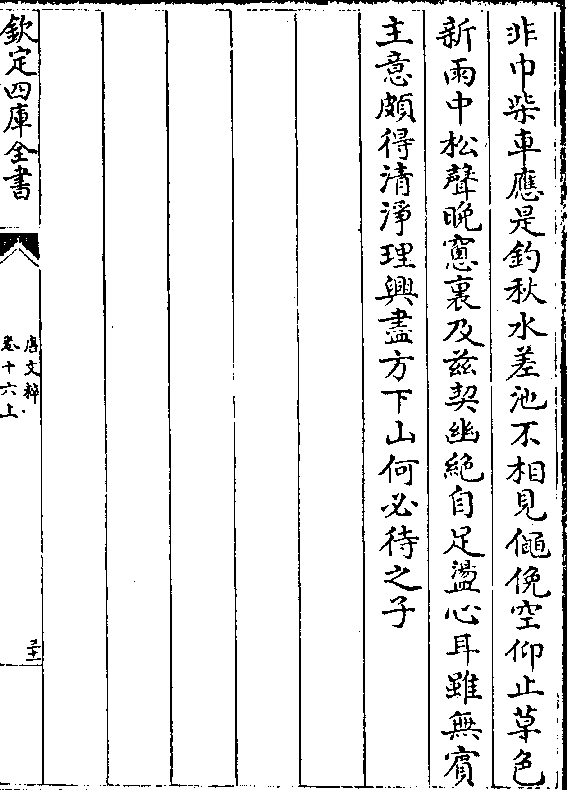 非巾柴車應是釣秋水差池不相見僶俛空仰止草色
新雨中松聲晚窻裏及兹契幽絶自足盪心耳雖無賓
主意頗得清淨理興盡方下山何必待之子
欽定四庫全書
唐文粹
卷十六上
三十二